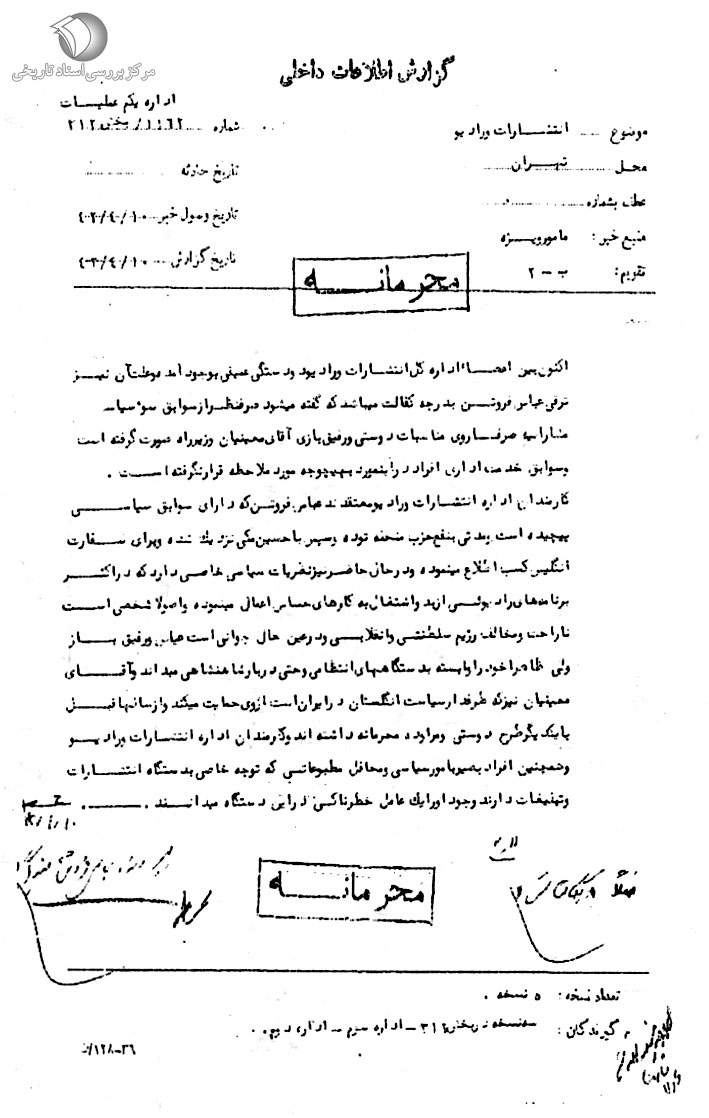 مرکز بررسی اسناد تاریخی
گزارش اطلاعات داخلی
اداره یکم عملیات
موضوع انتشارات و رادیو
شماره ۱۱۶۲ / بخش ۲۱۲
محل تهران
تاریخ حادثه
عطف بشماره
تاریخ وصول خبر ۱۰/۴/
منبع خبر: مامور ویژه
تاریخ گزارش ۱۰/۴/
تقویم: ب - ۲
محرمانه
اکنون بین اعضاء اداره کل انتشارات و رادیو دو دستگی عمیقی بوجود آمده و علت آن نیز
ترقی عباس فروتن بدرجه کفالت میباشد که گفته میشود صرفنظر از سوابق سوء سیاسی
مشارالیه صرفا روی مناسبات دوستی و رفیق بازی آقای معینیان وزیر راه صورت گرفته است
و سوابق خدمت اداری افراد در اینمورد بهیچوجه مورد ملاحظه قرار نگرفته است .
کارمندان اداره انتشارات و رادیو معتقدند عباس فروتن که دارای سوابق سیاسی
پیچیده است و مدتی بنفع حزب منحله توده و سپس با حسین مکی نزدیک شده و برای سفارت
انگلیس کسب اطلاع مینموده و در حال حاضر نیز نظریات سیاسی خاصی دارد که در اکثر
برنامه‌های رادیوئی از ید و اشتغال به کارهای حساس اعمال مینموده و اصولا شخصی است
ناراحت و مخالف رژیم سلطنتی و انقلابی و در عین حال جوانی است عیاش و رفیق باز
ولی ظاهرا خود را وابسته بدستگاههای انتظامی و حتی دربار شاهنشاهی میداند و آقای
معینیان نیز که طرفدار سیاست انگلستان در ایران است از وی حمایت میکند و از سالها قبل
با یکدیگر طرح دوستی و مراوده محرمانه داشته اند و کارمندان اداره انتشارات و رادیو
و همچنین افراد بصیر بامور سیاسی و محافل مطبوعاتی که توجه خاصی بدستگاه انتشارات
و تبلیغات دارند وجود او را یک عامل خطرناکی در این دستگاه میدانند .
محرمانه
تعداد نسخه : ۵ نسخه .
گیرندگان : سه نسخه بخش ۳۱۲ - اداره سوم - اداره دوم .
۳۶-۱۲۸/ف